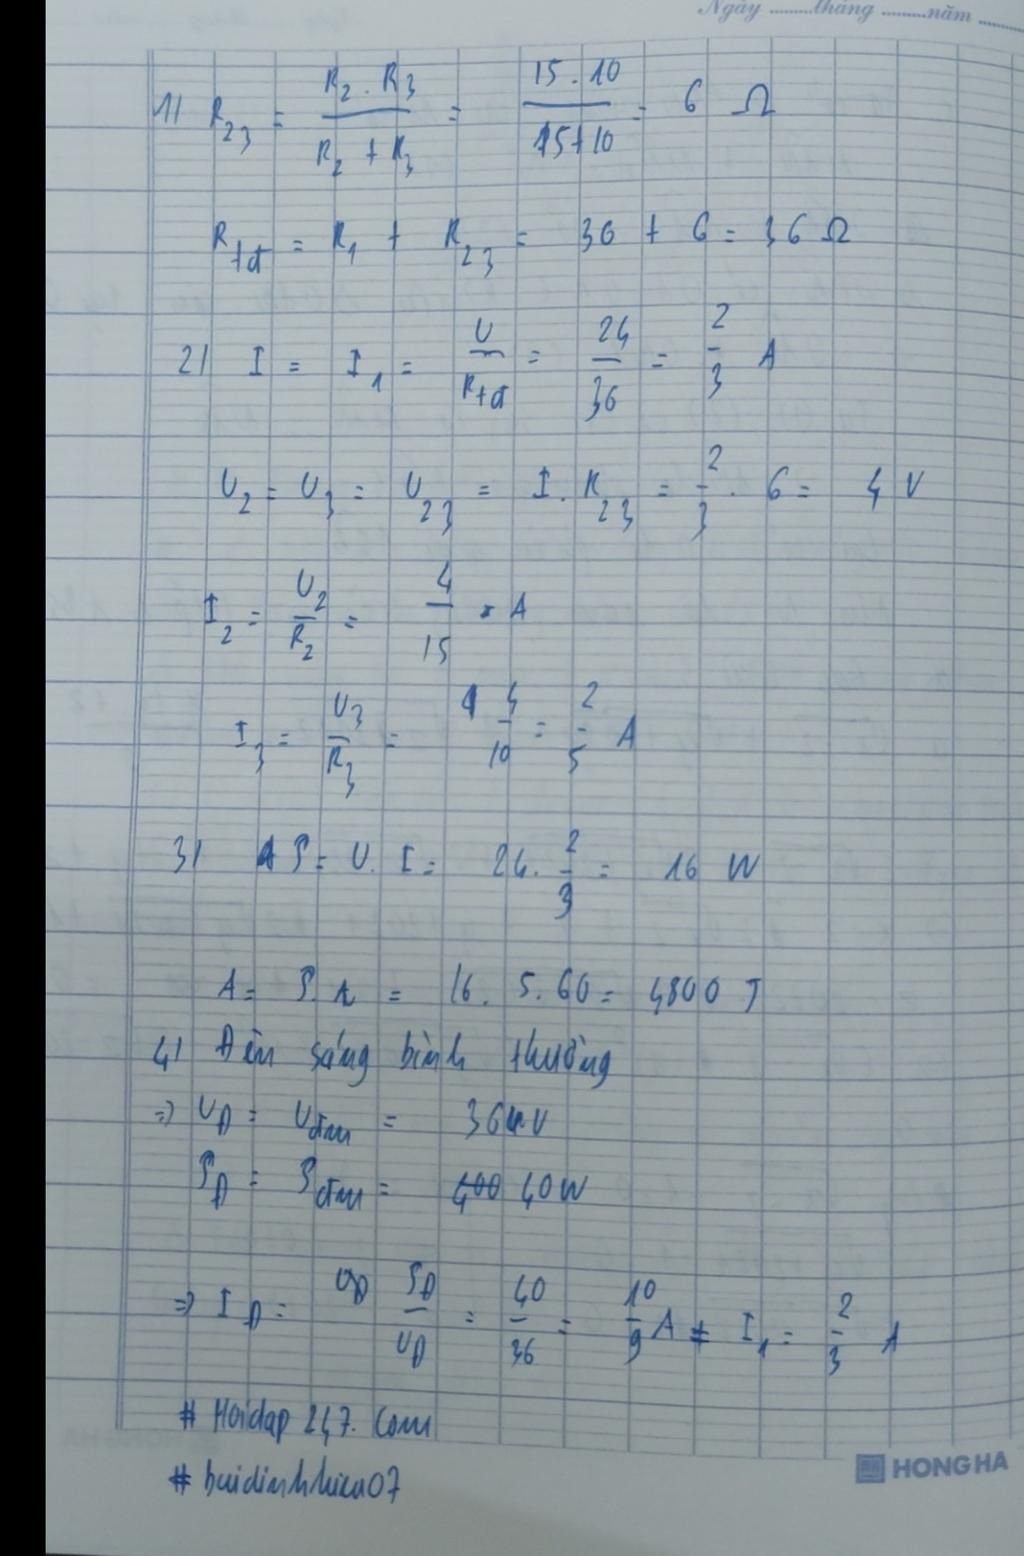 Ngày ........tháng ........năm ........
1/ R23 = R2 . R3 / R2 + R3 = 15 . 10 / 15+10 = 6 Ω
Rtđ = R1 + R23 = 30 + 6 = 36 Ω
2/ I = I1 = U / Rtđ = 24 / 36 = 2/3 A
U2 = U3 = U23 = I . R23 = 2/3 . 6 = 4 V
I2 = U2 / R2 = 4 / 15 A
I3 = U3 / R3 = 4 / 10 = 2/5 A
3/ P = U . I = 24 . 2/3 = 16 W
A = P.t = 16 . 5 . 60 = 4800 J
4/ Đèn sáng bình thường
=> UĐ = Uđm = 36 V
PĐ = Pđm = 400 40W
=> IĐ = PĐ / UĐ = 40 / 36 = 10/9 A ≠ I1 = 2/3 A
# Hoidap 247. Com
# buidinhhieu07
HONG HA